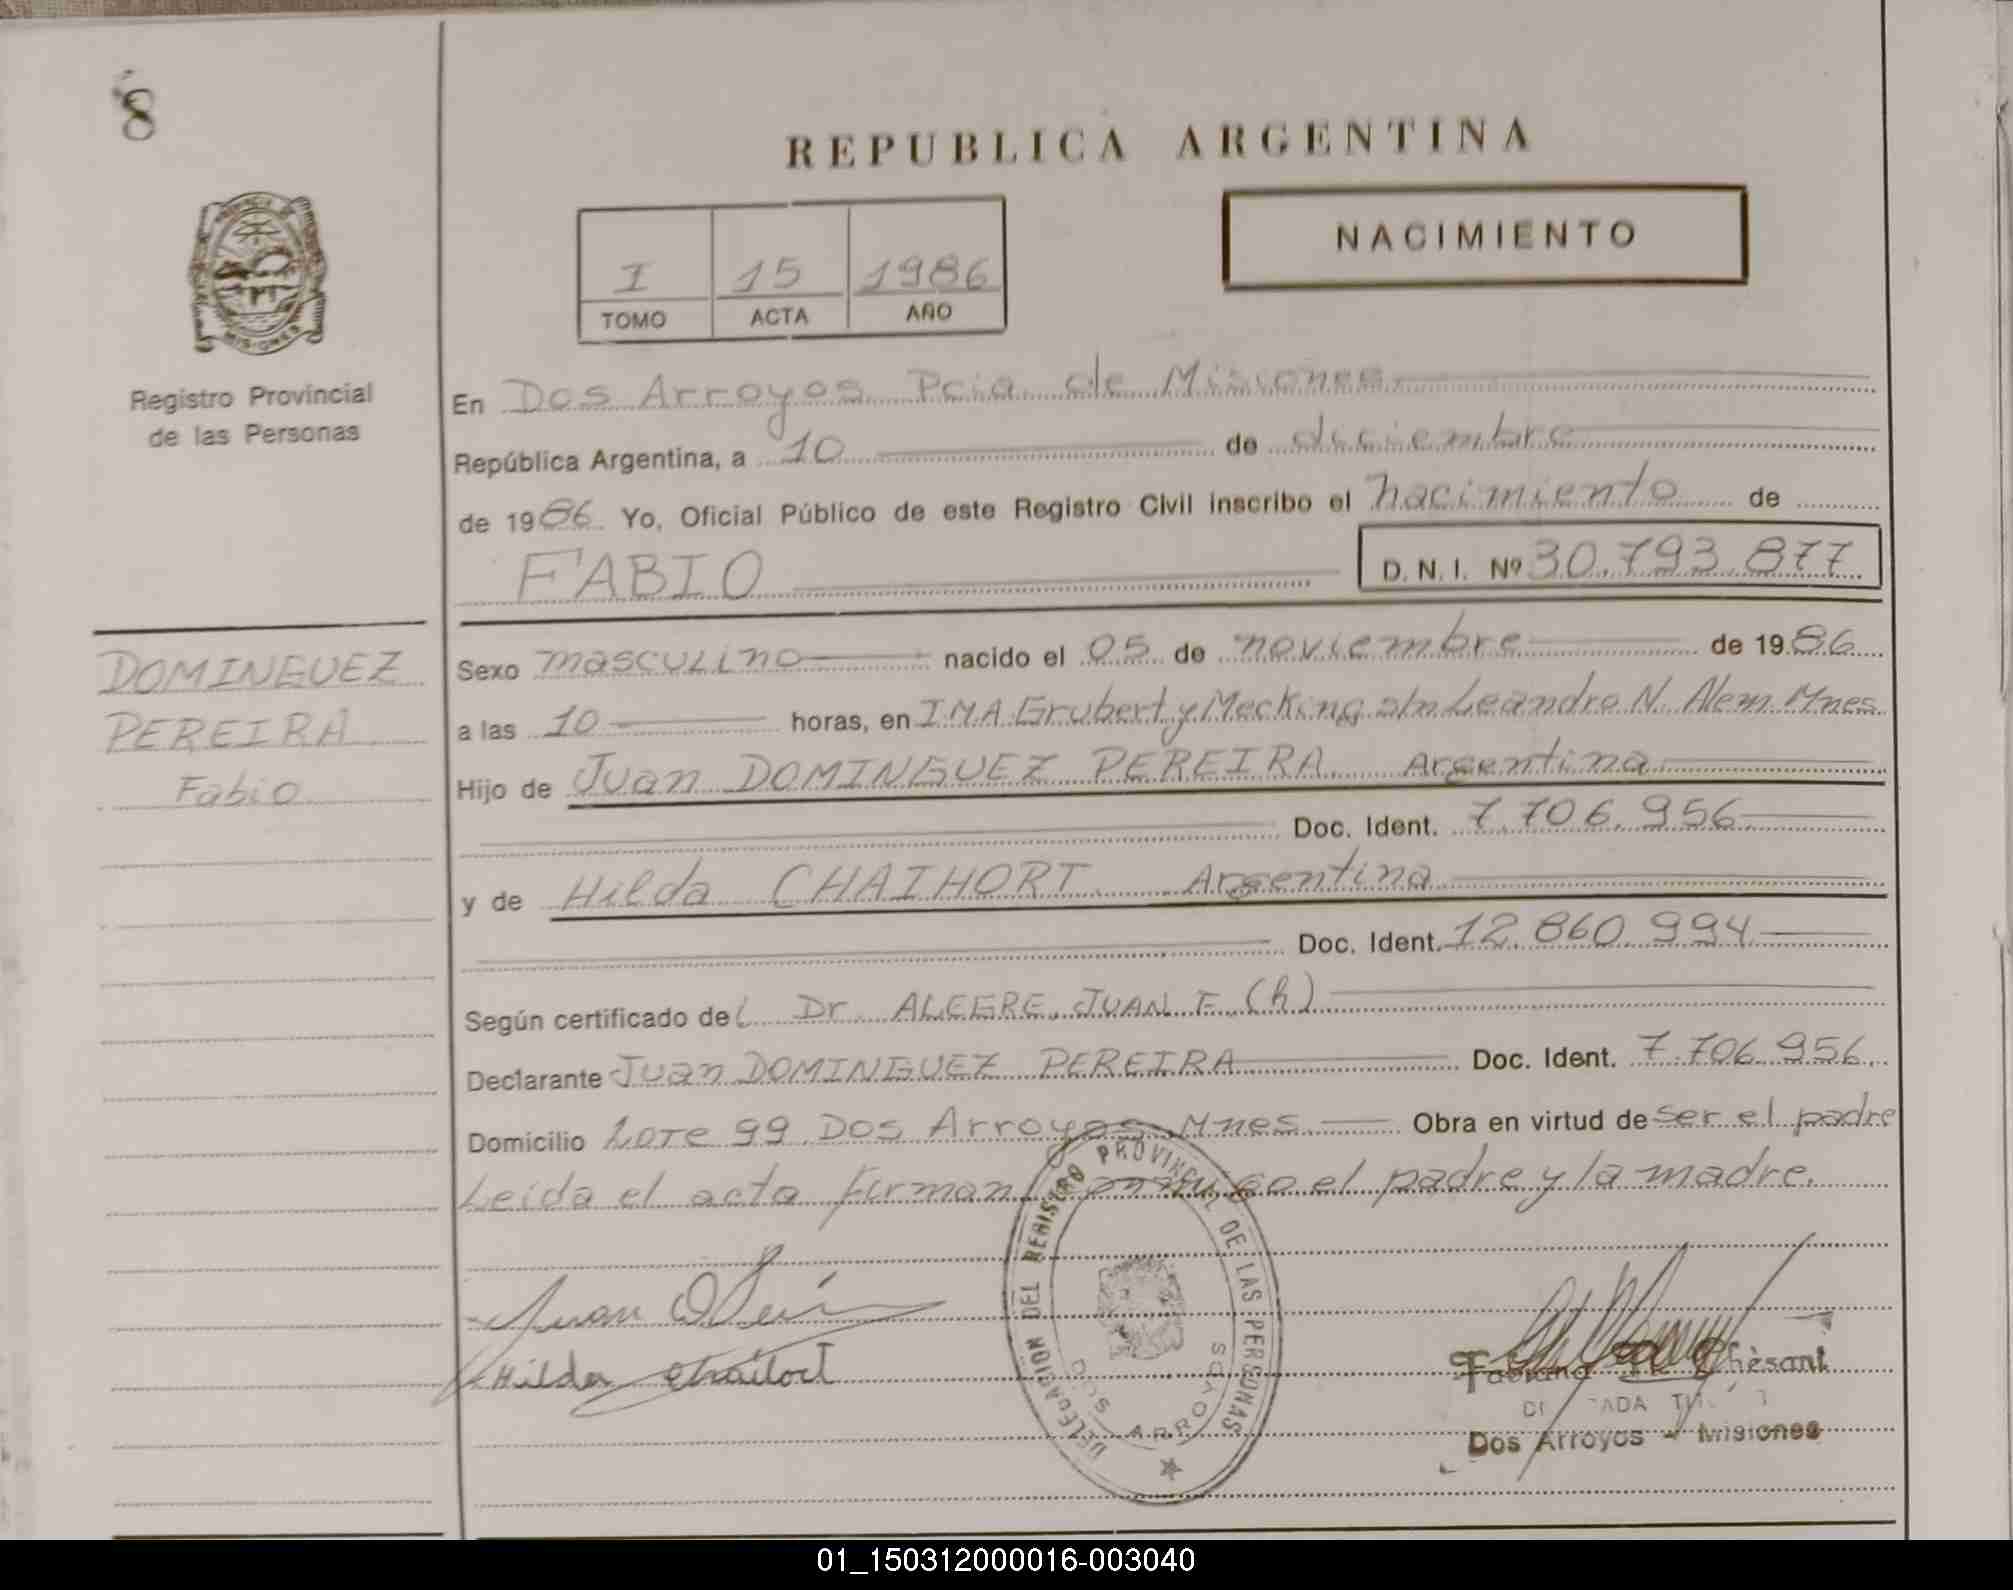 8
REPUBLICA ARGENTINA
PROVINCIA DE MISIONES
NACIMIENTO
I 15 1986
TOMO ACTA AÑO
Registro Provincial
de las Personas
En Dos Arroyos Pcia de Misiones
República Argentina, a 10 de diciembre
de 1986 Yo, Oficial Público de este Registro Civil inscribo el nacimiento de
FABIO D. N. I. Nº 30.793.877
DOMINGUEZ
PEREIRA
Fabio
Sexo masculino nacido el 05 de noviembre de 1986
a las 10 horas, en I.M.A Grubert y Mecking s/n Leandro N. Alem Mnes
Hijo de Juan DOMINGUEZ PEREIRA Argentina
Doc. Ident. 7.706.956
y de Hilda CHAIHORT Argentina
Doc. Ident. 12.860.994
Según certificado del Dr. ALEGRE, JUAN F. (h)
Declarante Juan DOMINGUEZ PEREIRA Doc. Ident. 7.706.956
Domicilio Lote 99 Dos Arroyos Mnes Obra en virtud de ser el padre
Leida el acta firman conmigo el padre y la madre.
DELEGACION DEL REGISTRO PROVINCIAL DE LAS PERSONAS
DOS ARROYOS
Juan
Hilda
Dos Arroyos - Misiones
01_150312000016-003040